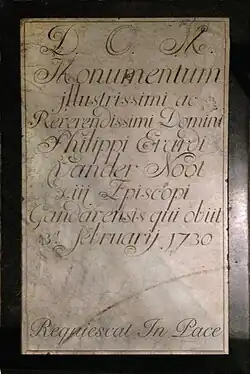 D. O. M.
Monumentum
jllustrissimi ac
Reverendissimi Domini
Philippi Erardi
Vander Noot
xiii Episcopi
Gandavensis qui obiit
3. february 1730
Requiescat In Pace